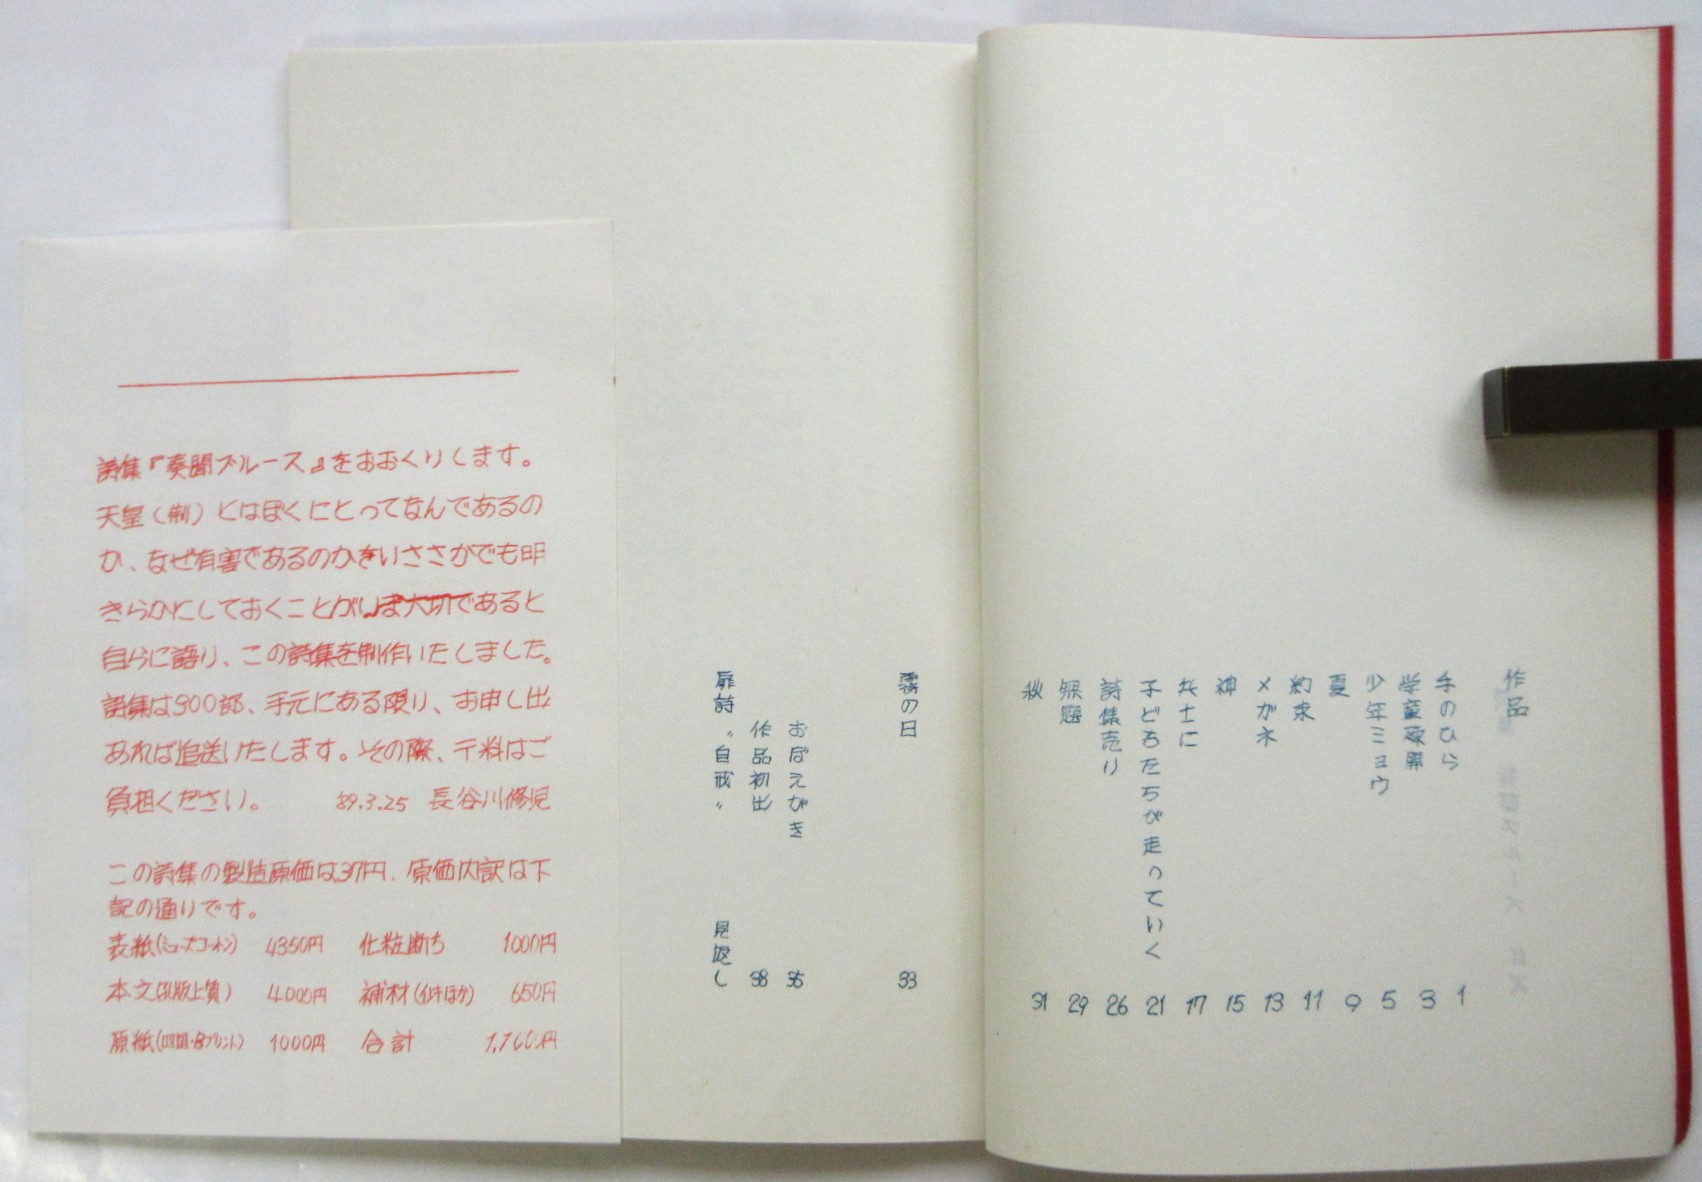 詩集『奏聞ブルース』をおおくりします。
天皇(制)とはぼくにとってなんであるの
か、なぜ有害であるのかをいささかでも明
きらかにしておくことがいま大切であると
自らに語り、この詩集を制作いたしました。
詩集は300部、手元にある限り、お申し出
あれば追送いたします。その際、〒料はご
負担ください。 89.3.25 長谷川修児
この詩集の製造原価は37円、原価内訳は下
記の通りです。
表紙(ミューズコットン) 4350円 化粧断ち 1000円
本文(孔版上質) 4000円 補材(インキほか) 650円
原紙 1000円 合計
作品
手のひら 1
学童疎開 3
少年ミョウ 5
夏 9
約束 11
メガネ 13
神 15
兵士に 17
子どもたちが走っていく 21
詩集売り 26
無題 29
秋 31
霧の日 33
おぼえがき 35
作品初出 38
扉詩〝自戒〟 見返し